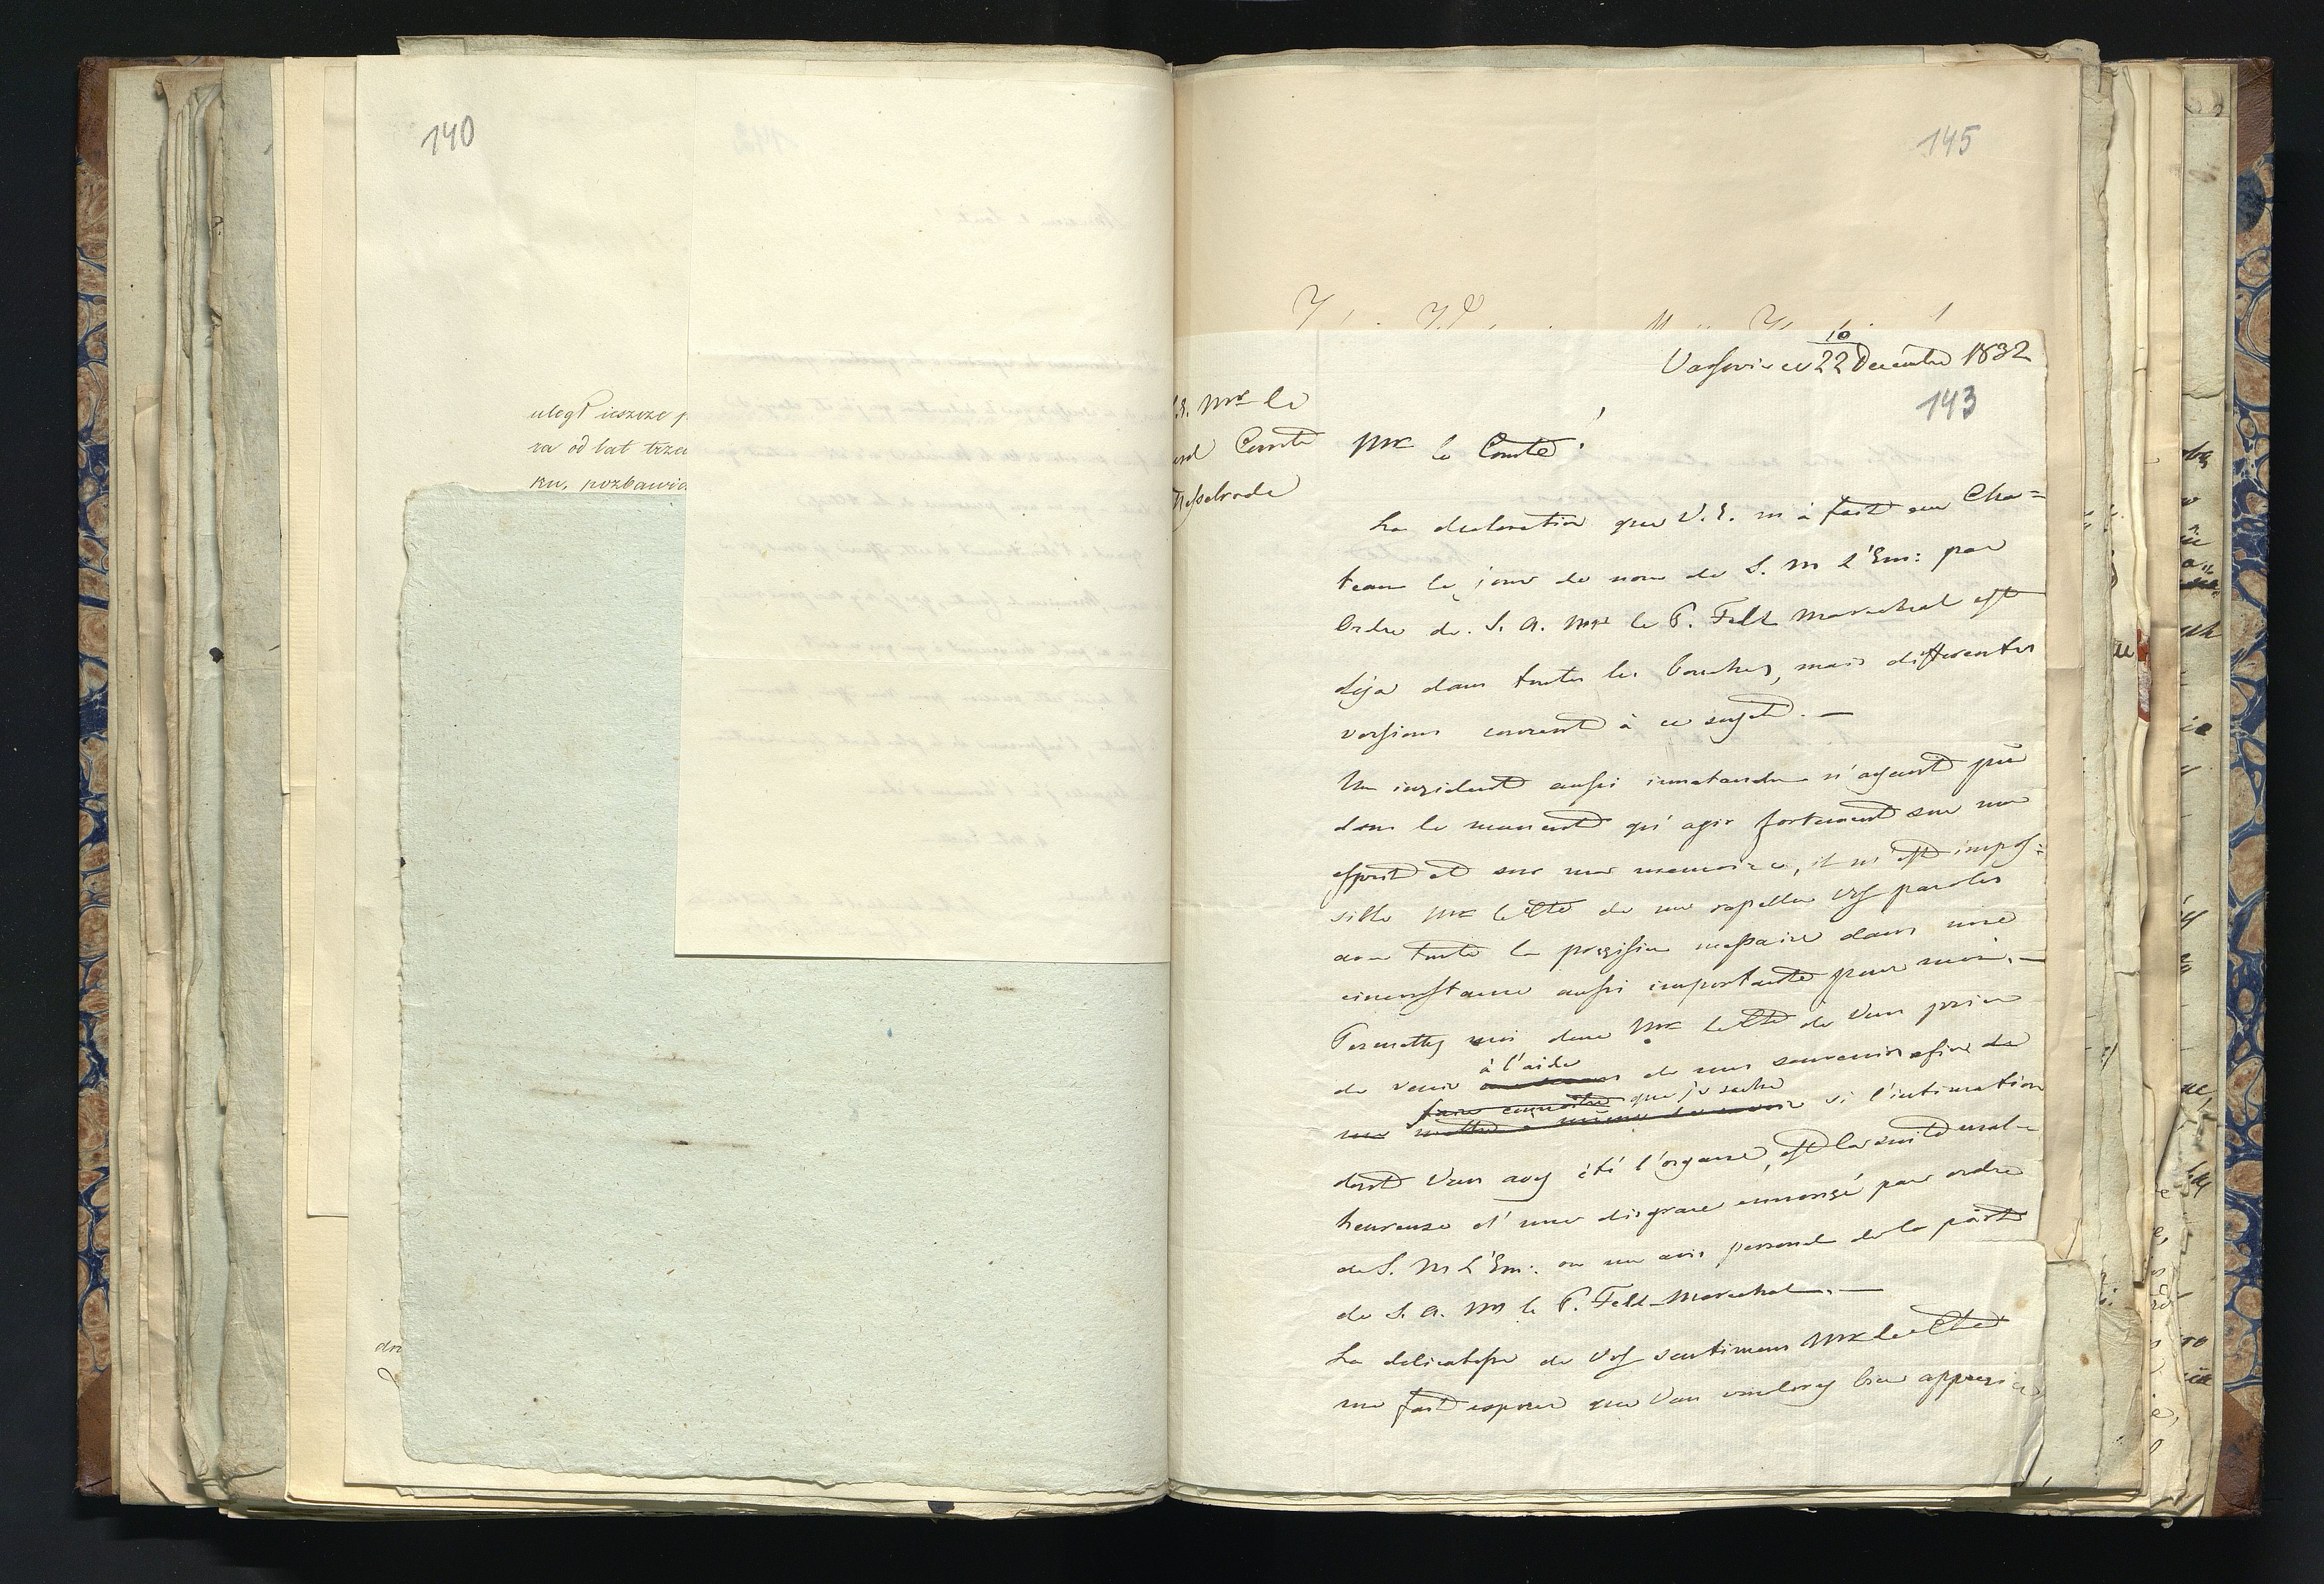 140
uległ ieszcze p
ra od lat trze
ku, pozbawia
145
10
Varsovie ce 22 Decembre 1832
143
S.E. Mr le
Comte
Nesselrode
Mr le Comte!
La declaration que V.E. m'a fait au Cha=
teau le jour de nom de S. M l'Em: par
Ordre de S. A. Mr le P. Feld Marechal est
déja dans toutes les bouches, mais differentes
versions courent à ce sujet. —
Un inzident aussi innatendu n'ayant pû
dans le moment qu'agir fortement sur mon
esprit et sur ma memoire, il m'est impos=
sible Mr le Cte de me rapeller vos paroles
avec toute la prezision nessaire dans une
circonstance aussi importante pour moi. —
Permettez moi donc Mr le Cte de Vous prier
à l'aide
de venir de mes souvenirs afin de
faire connaitre que je sache
me mettre à même de savoir si l'intimation
dont Vous avez été l'organe, est la suite mal-
heureuse d'une disgrace annonsé par ordre
de S. M l'Em: ou un avis personel de la part
de S. A. Mr le P. Feld-Marechal. —
La delicatesse de vos sentimens Mr le Cte
me fait esperer que Vous voudrez bien apprezier